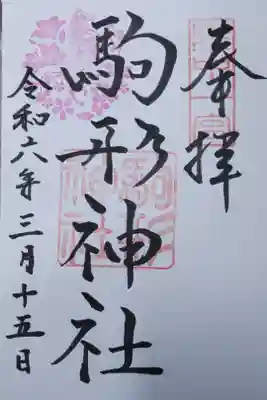 奉拝
駒形神社
令和六年三月十五日